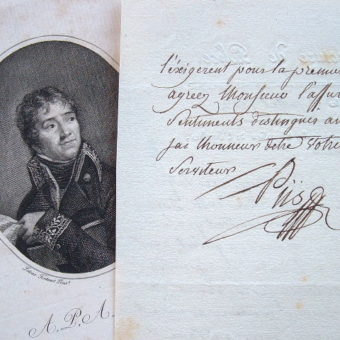 l'éxigerent pour la premie
agreéz Monsieur l'assur
sentiments distingués av
jai lhonneur detre votre
serviteur
Piis
A. P. A.